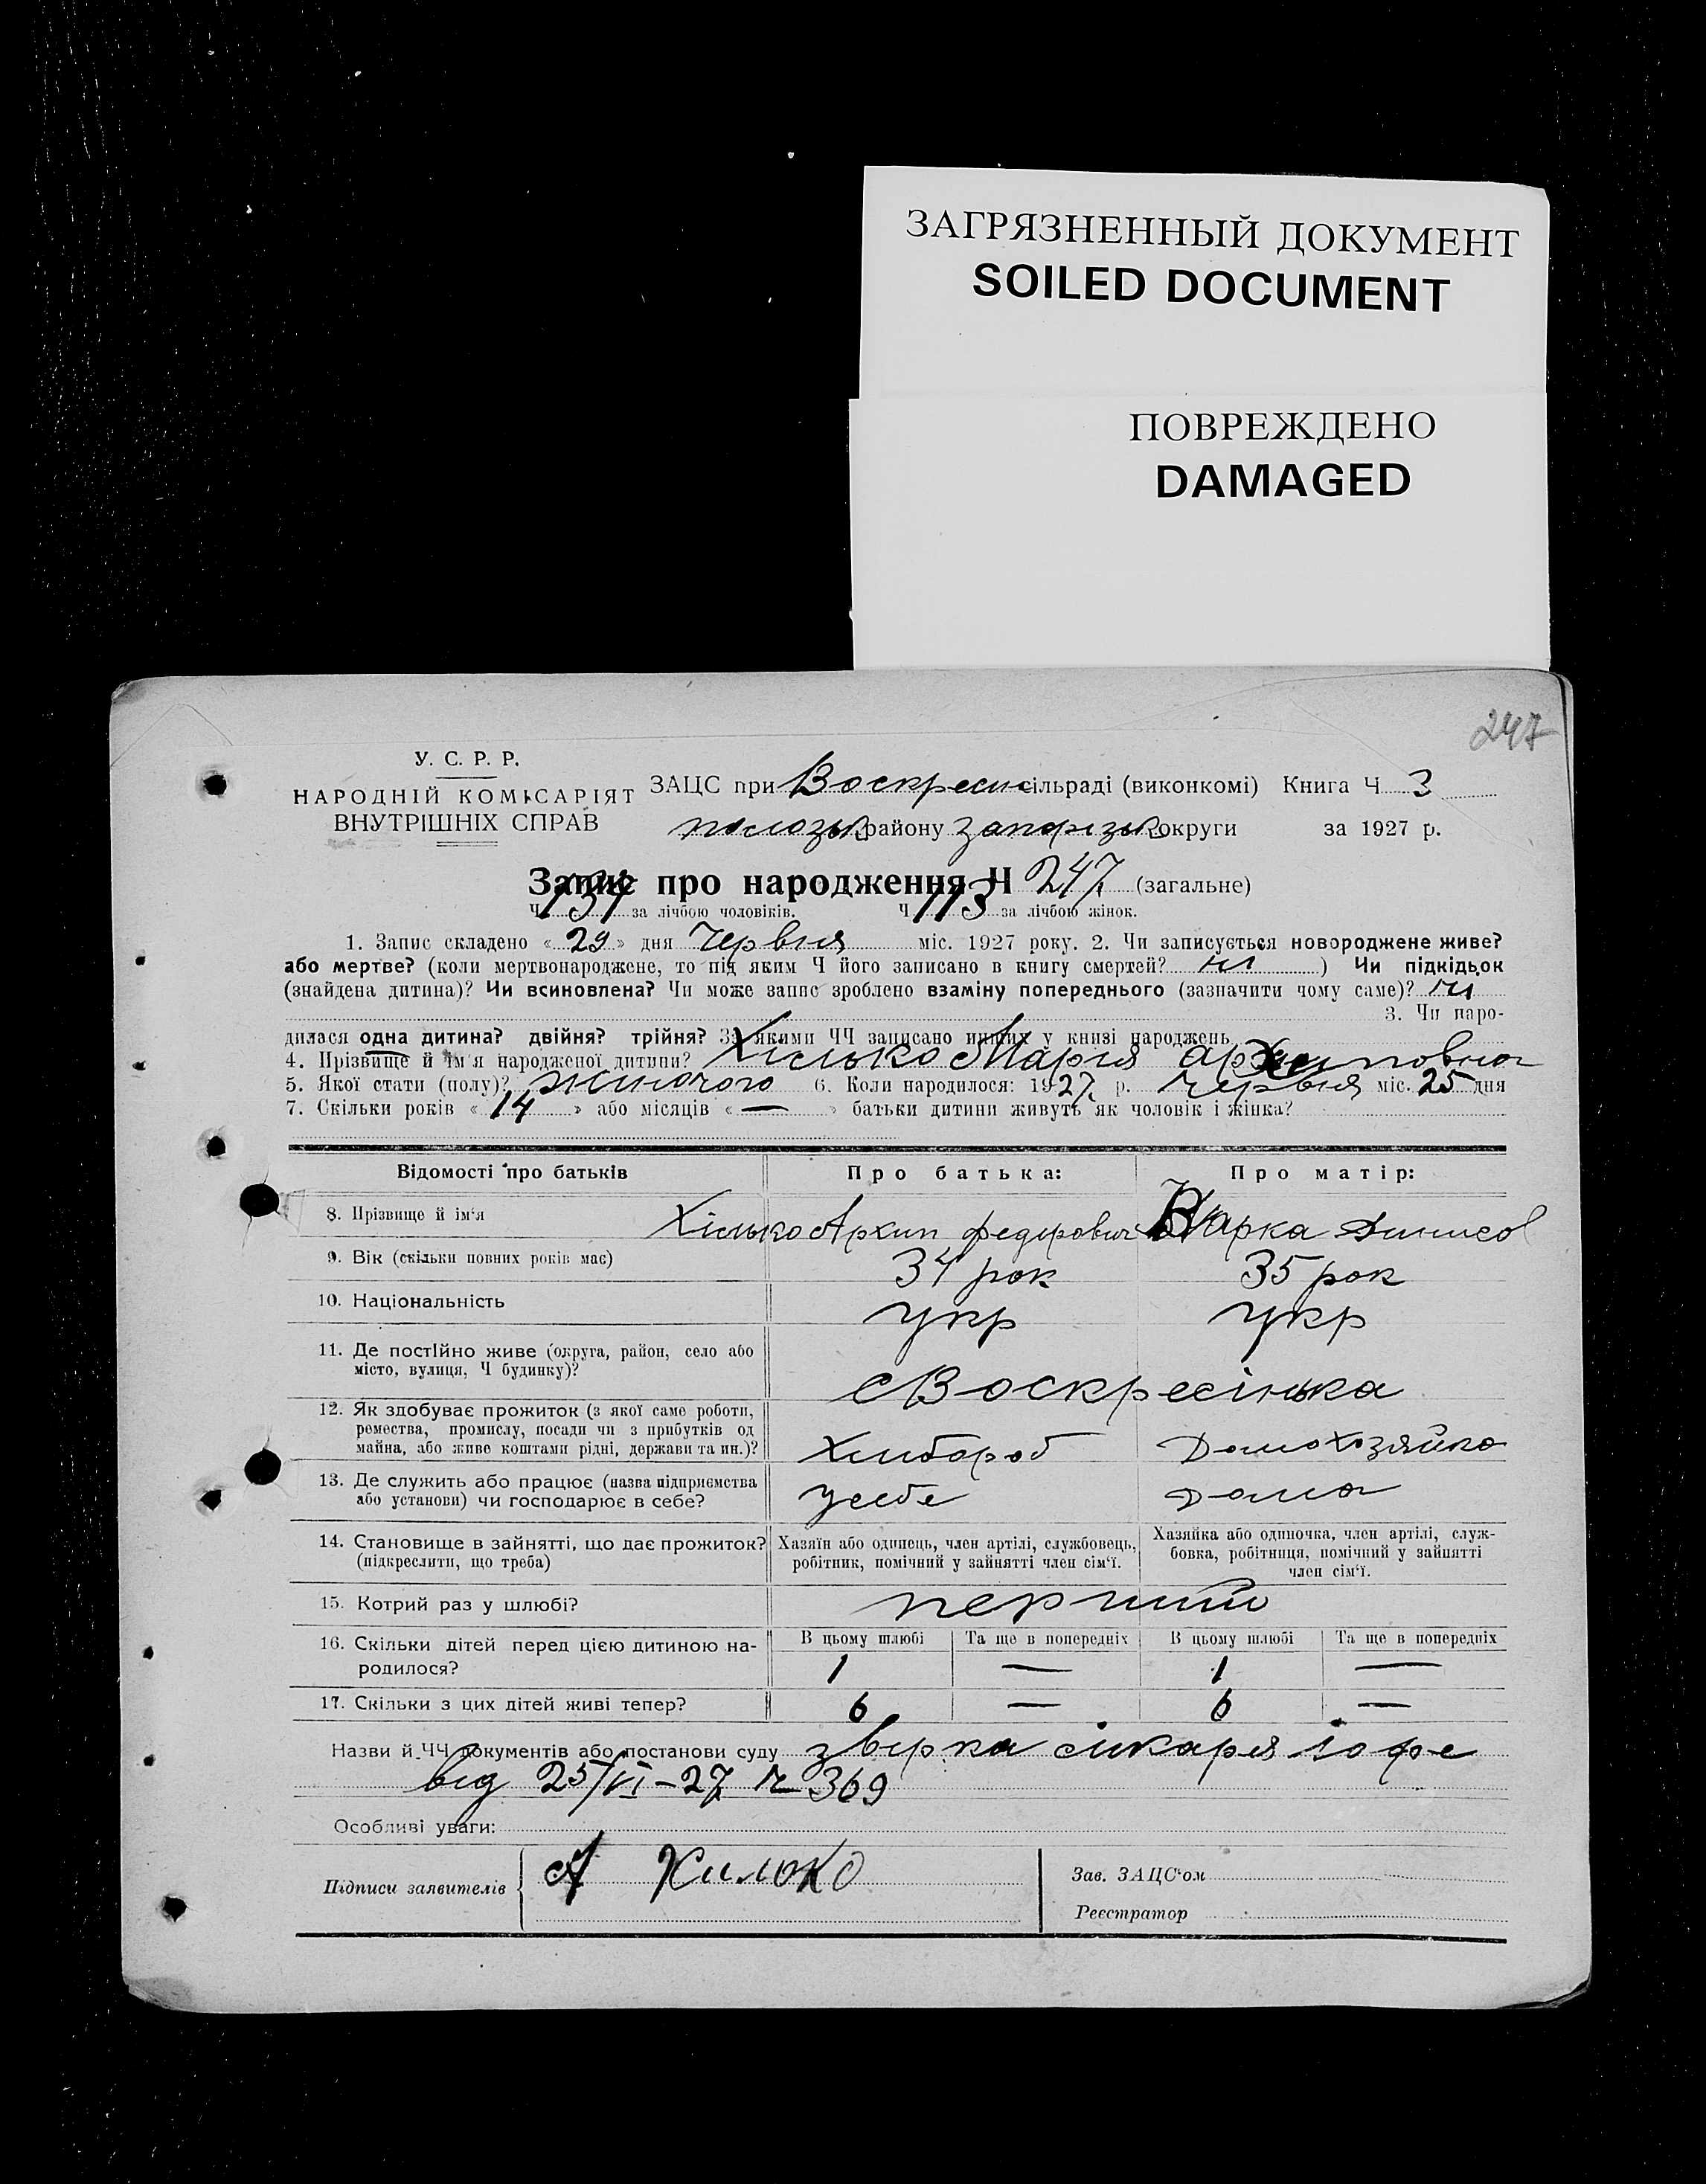 ЗАГРЯЗНЕННЫЙ ДОКУМЕНТ
SOILED DOCUMENT
ПОВРЕЖДЕНО
DAMAGED
247
У. С. Р. Р.
НАРОДНІЙ КОМІСАРІЯТ
ВНУТРІШНІХ СПРАВ
ЗАЦС при Воскресен сільраді (виконкомі) Книга Ч 3
пологзьк району запорізьк округи за 1927 р.
Запис про народження Ч 247 (загальне)
Ч 134 за лічбою чоловіків. Ч 113 за лічбою жінок.
1. Запис складено « 29 » дня Червня міс. 1927 року. 2. Чи записується новороджене живе?
або мертве? (коли мертвонароджене, то під яким Ч його записано в книгу смертей? ні ) Чи підкідьок
(знайдена дитина)? Чи всиновлена? Чи може запис зроблено взаміну попереднього (зазначити чому саме)? ні
3. Чи наро-
дилася одна дитина? двійня? трійня? З якими ЧЧ записано инших у книзі народжень
4. Прізвище й ім'я народженої дитини? Хілько Марія Архиповна
5. Якої стати (полу)? жиночого 6. Коли народилося: 1927 р. червня міс. 25 дня
7. Скільки років « 14 » або місяців « — » батьки дитини живуть як чоловік і жінка?
Відомості про батьків Про батька: Про матір:
8. Прізвище й ім'я Хілько Архип федорович Варка Динисов
9. Вік (скільки повних років має) 34 рок 35 рок
10. Національність укр укр
11. Де постійно живе (округа, район, село або
місто, вулиця, Ч будинку)?
с Воскресінька
12. Як здобуває прожиток (з якої саме роботи,
ремества, промислу, посади чи з прибутків од
майна, або живе коштами рідні, держави та ин.)?
Хлибороб Домохозяйка
13. Де служить або працює (назва підприємства
або установи) чи господарює в себе?
усебе дома
14. Становище в зайнятті, що дає прожиток?
(підкреслити, що треба)
Хазяїн або одинець, член артілі, службовець,
робітник, помічний у зайнятті член сім'ї.
Хазяйка або одиночка, член артілі, служ-
бовка, робітниця, помічний у зайнятті
член сім'ї.
15. Котрий раз у шлюбі? перший
16. Скільки дітей перед цією дитиною на-
родилося?
В цьому шлюбі Та ще в попередніх В цьому шлюбі Та ще в попередніх
1 — 1 —
17. Скільки з цих дітей живі тепер? 6 — 6 —
Назви й ЧЧ документів або постанови суду звірка лікаря Іофе
від 25/VI-27 № 369
Особливі уваги:
Підписи заявителів А Хилько
Зав. ЗАЦС'ом
Реєстратор